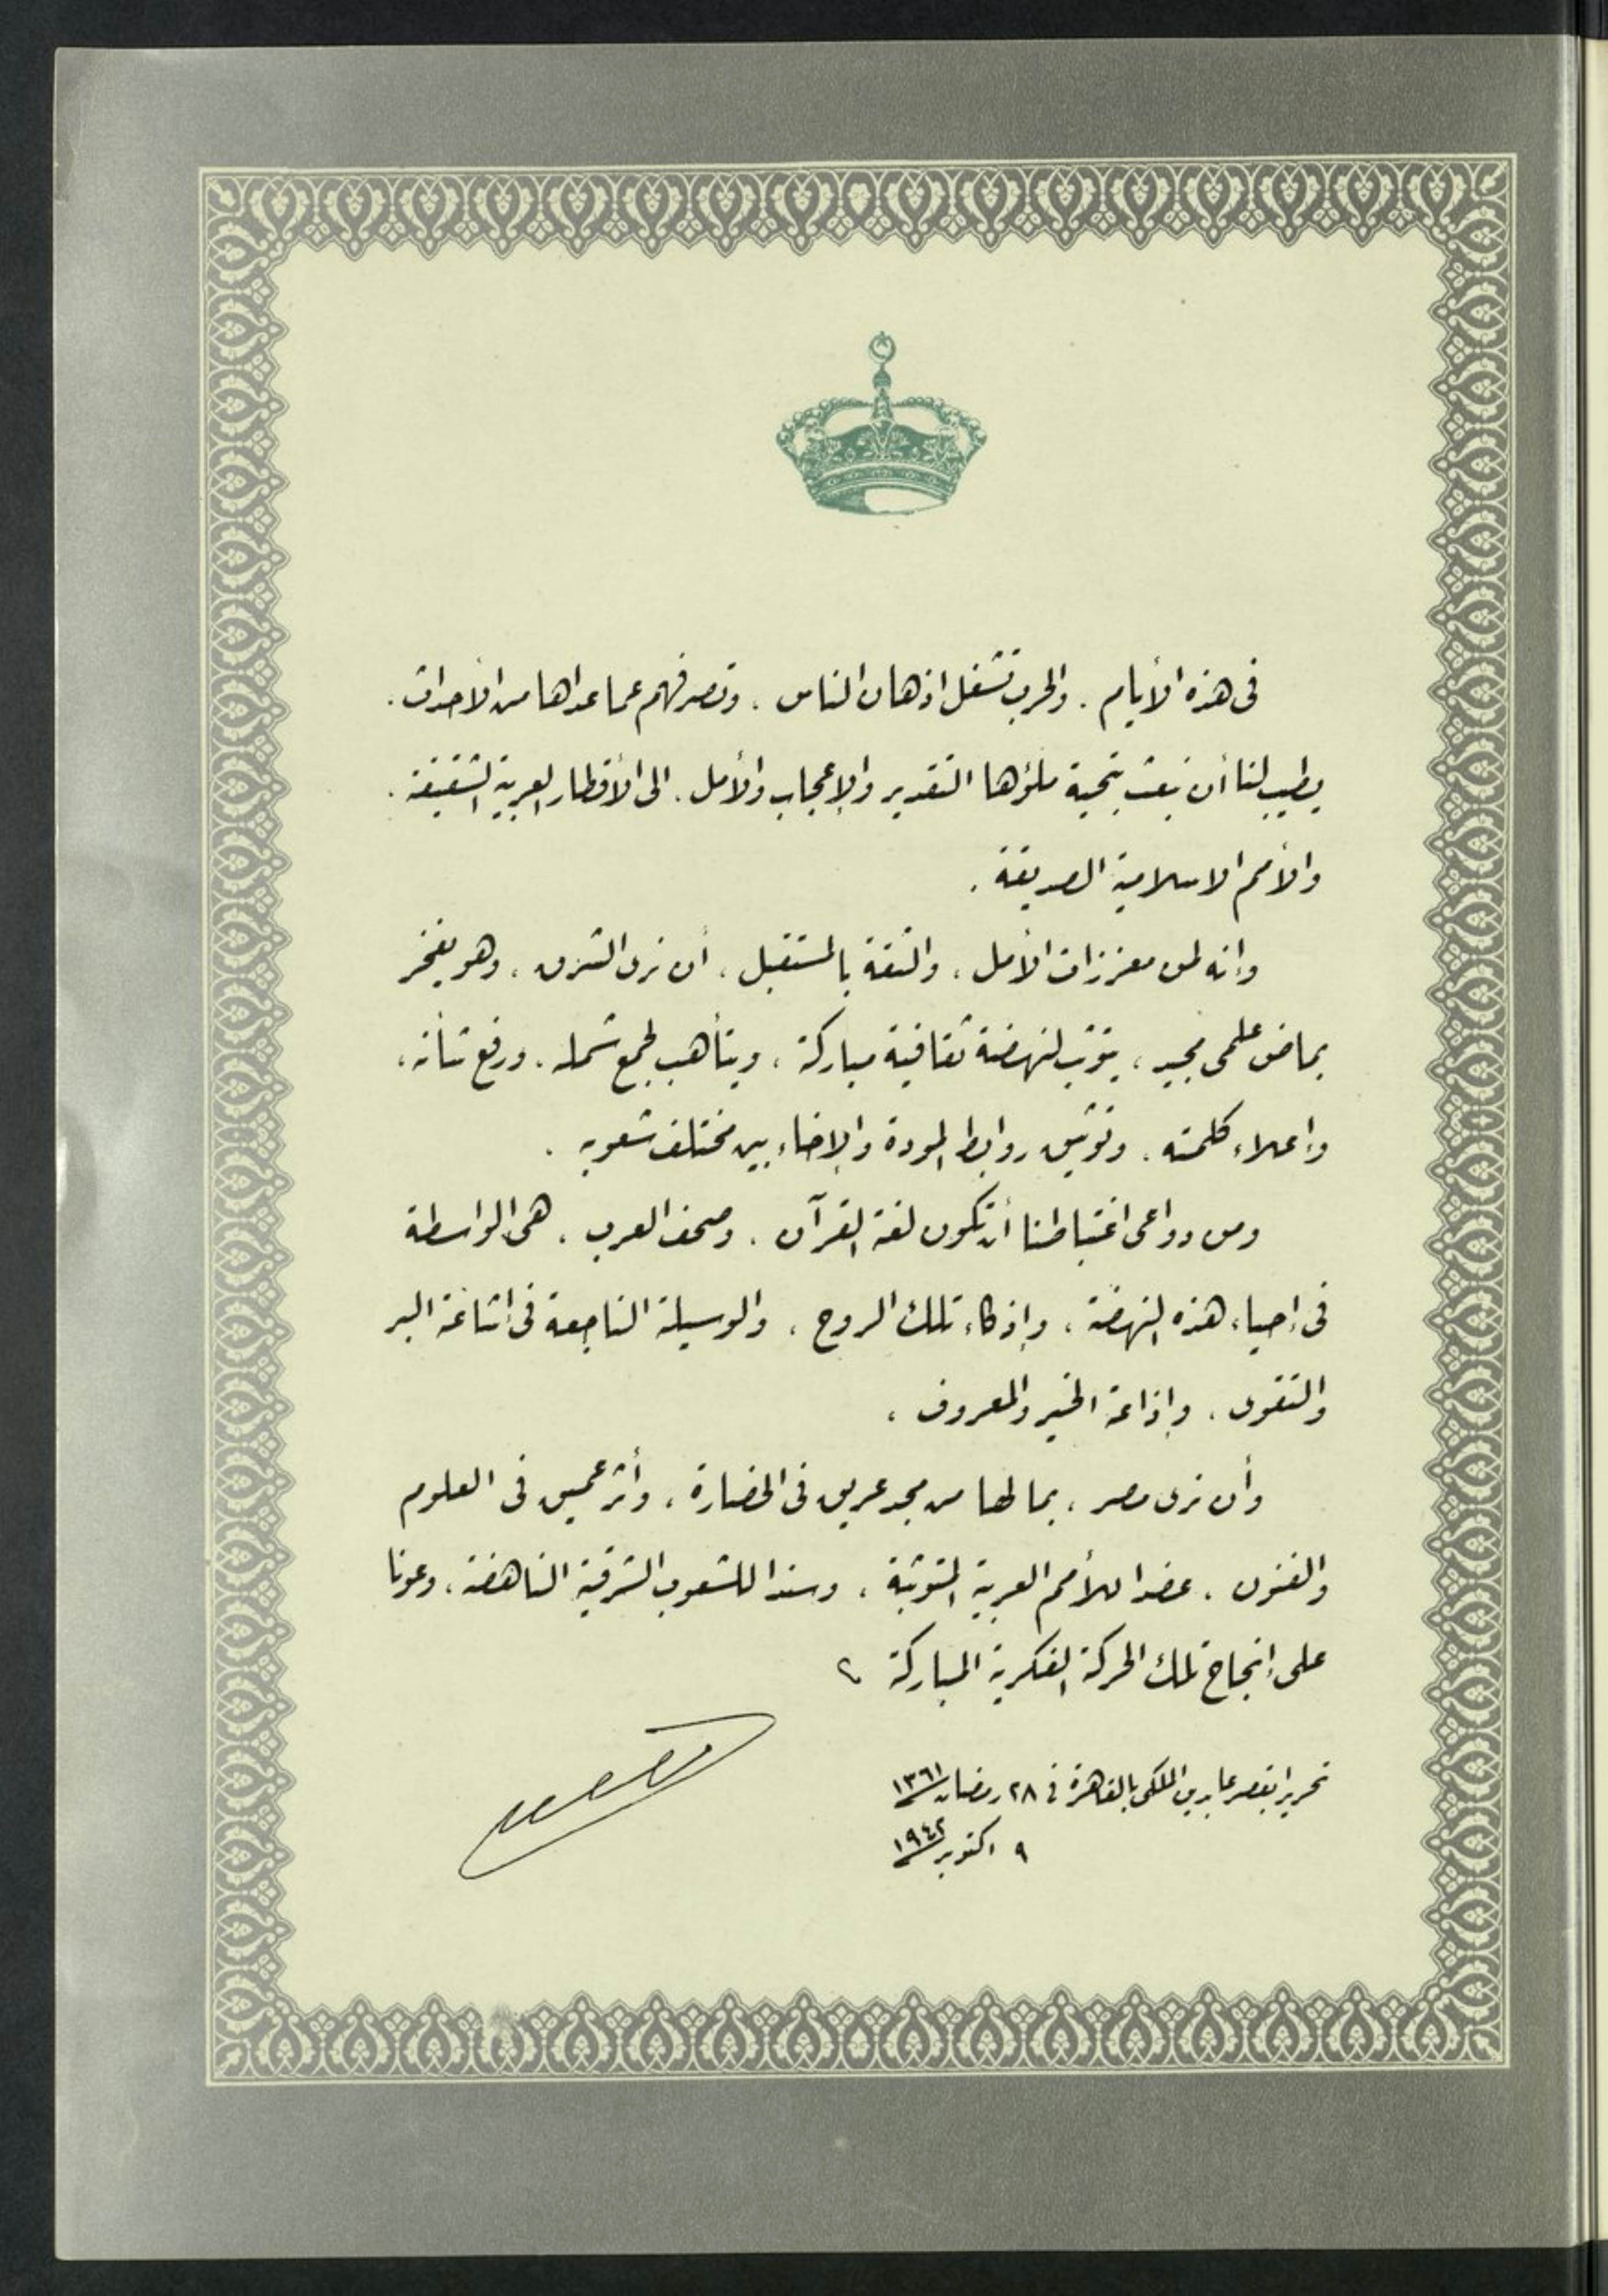 فى هذه الأيام . والحرب تشغل اذهان الناس . وتصرفهم عما عداها من الأحداث .
يطيب لنا أن نبعث بتحية ملؤها التقدير والإعجاب والأمل . الى الأقطار العربية الشقيقة .
والأمم الاسلامية الصديقة .
وإنه لمن معززات الأمل ، والثقة بالمستقبل ، أن نرى الشرق ، وهو يفخر
بماض علمى مجيد ، يتوثب لنهضة ثقافية مباركة ، ويتأهب لجمع شمله . ورفع شأنه ،
وإعلاء كلمته . وتوثيق روابط المودة والإخاء بين مختلف شعوبه .
ومن دواعى اغتباطنا أن تكون لغة القرآن . وصحف العرب . هى الواسطة
فى إحياء هذه النهضة ، وإذكاء تلك الروح ، والوسيلة الناجعة فى اشاعة البر
والتقوى . وإذاعة الخير والمعروف .
وأن نرى مصر ، بما لها من مجد عريق فى الحضارة ، وأثر عميق فى العلوم
والفنون . عضدا للأمم العربية المتوثبة ، وسندا للشعوب الشرقية الناهضة ، وعونا
على إنجاح تلك الحركة الفكرية المباركة
تحريرا بقصر عابدين الملكى بالقاهرة فى ٢٨ رمضان ١٣٦١
٩ اكتوبر ١٩٤٢